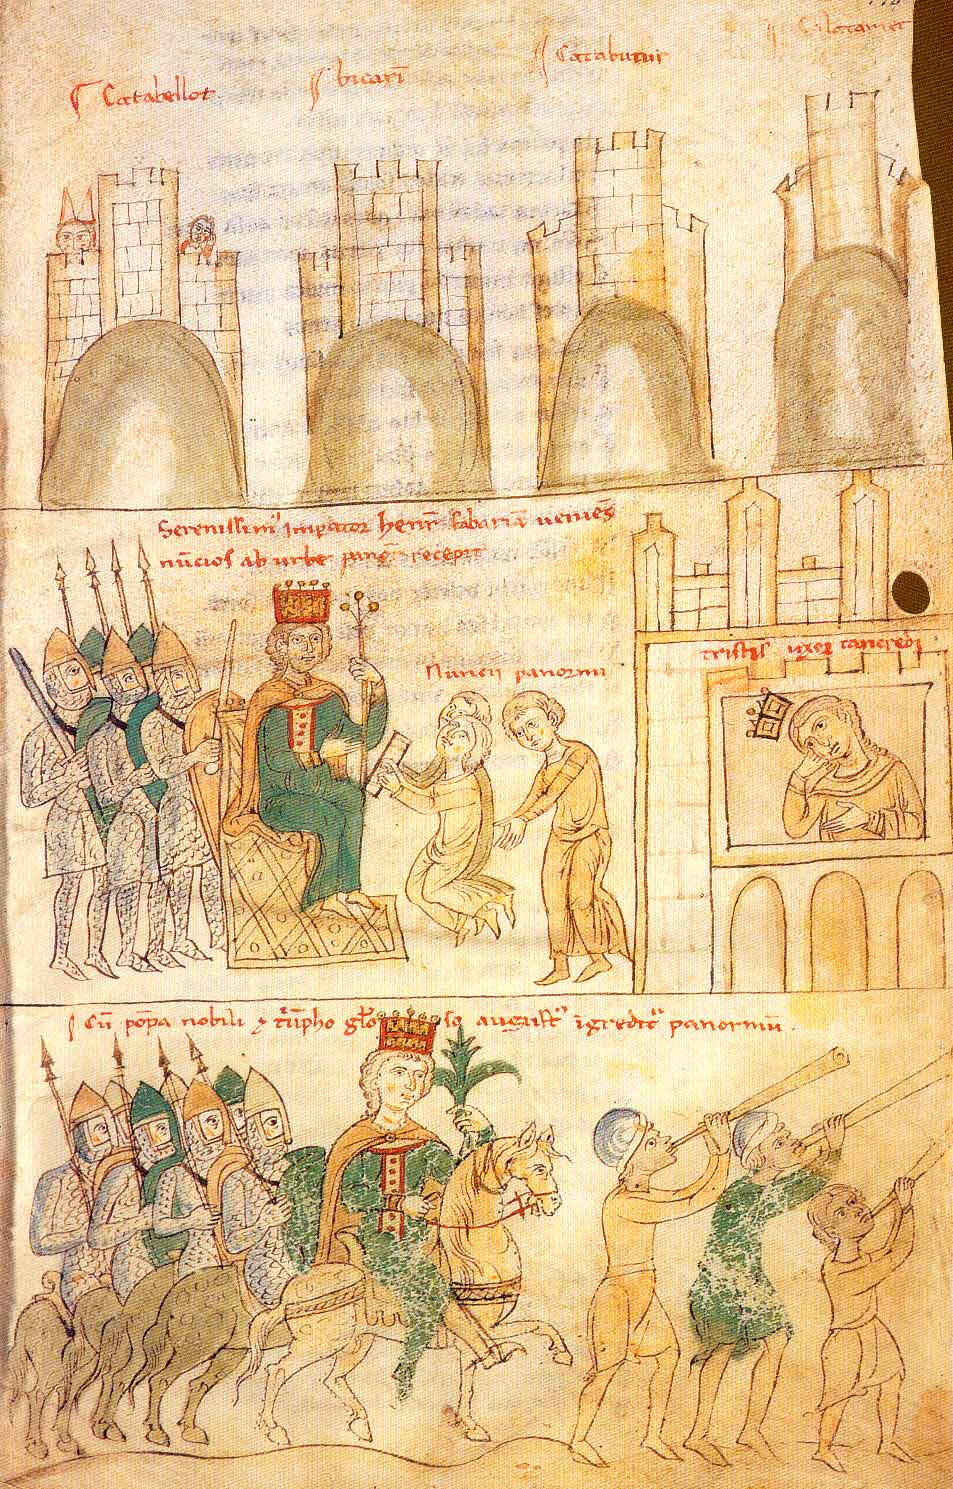 Catabellot
bicari
Catabutur
Calatamet
Serenissim' imperator henr' fabariā
nūcios ab urbe recepit
Nuncii panormi
tristis uxor tancredi
Cū pōpa nobili z t'ūpho gl'o so august' īgredit' panormū.